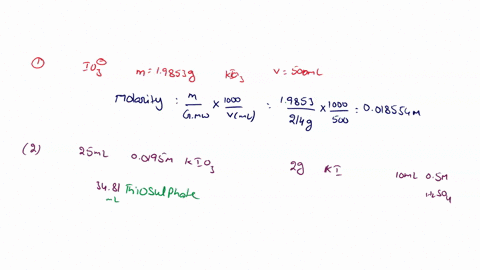 ① IO3⊖ m = 1.9853g KIO3 V = 500mL
Molarity : m/G.mw × 1000/V(mL) : 1.9853/214g × 1000/500 : 0.018554M
(2) 25mL 0.0195M KIO3 2g KI 10mL 0.5M
34.81 Thiosulphate H2SO4
mL